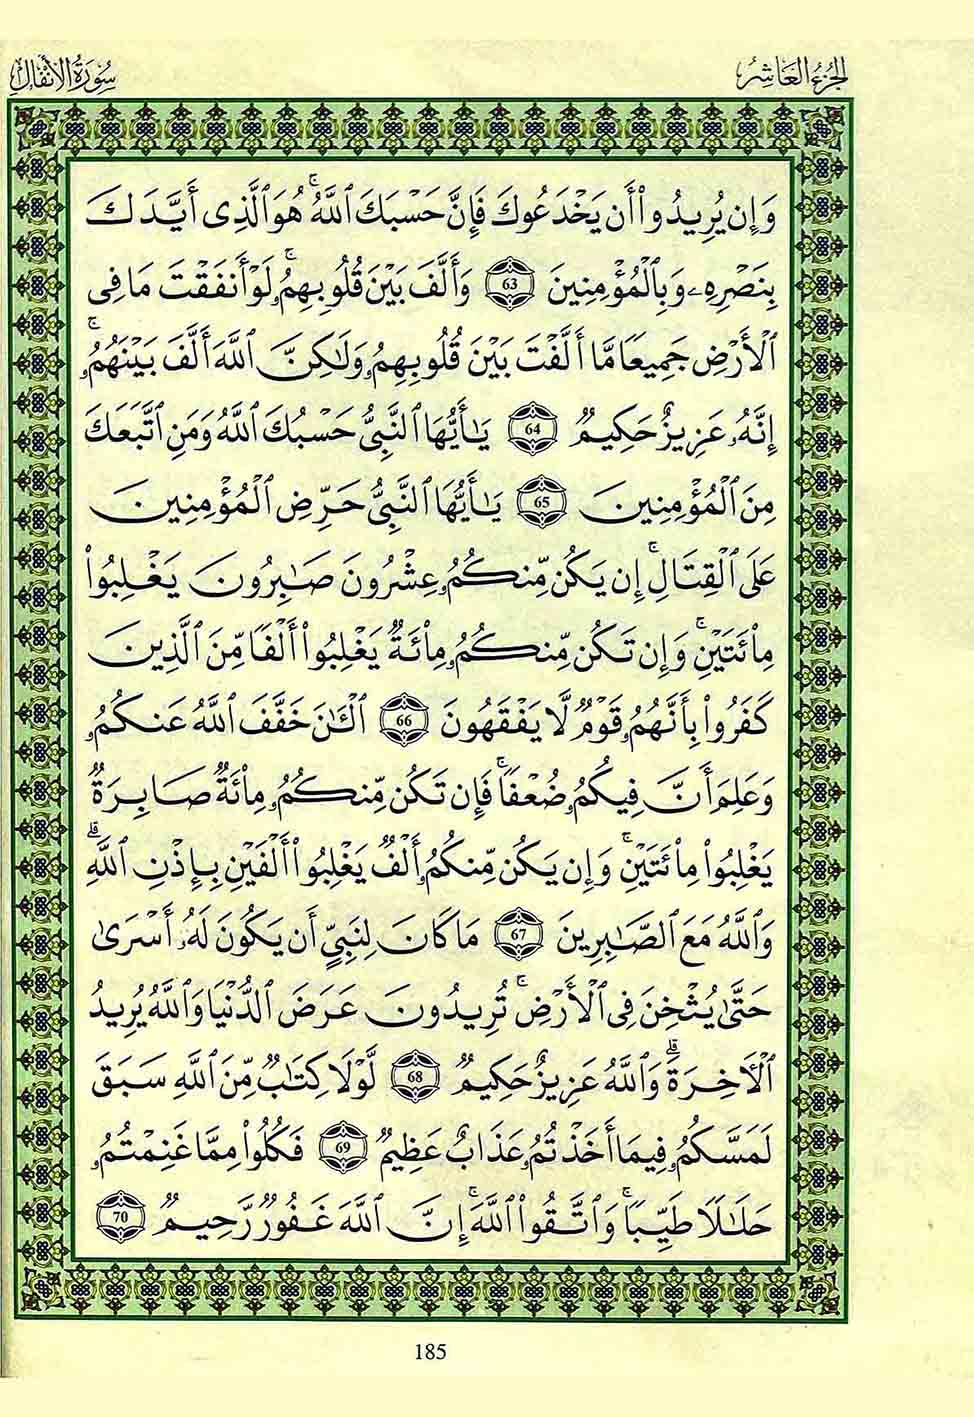 الجزء العاشر
سورة الأنفال
وَإِن يُرِيدُوٓا۟ أَن يَخْدَعُوكَ فَإِنَّ حَسْبَكَ ٱللَّهُ ۚ هُوَ ٱلَّذِى أَيَّدَكَ
بِنَصْرِهِۦ وَبِالْمُؤْمِنِينَ 63 وَأَلَّفَ بَيْنَ قُلُوبِهِمُۥ ۚ لَوْ أَنفَقْتَ مَا فِى
ٱلْأَرْضِ جَمِيعًا مَّا أَلَّفْتَ بَيْنَ قُلُوبِهِمُۥ وَلَٰكِنَّ ٱللَّهَ أَلَّفَ بَيْنَهُمُۥ ۚ
إِنَّهُۥ عَزِيزٌ حَكِيمٌ 64 يَٰأَيُّهَا ٱلنَّبِىُّ حَسْبُكَ ٱللَّهُ وَمَنِ ٱتَّبَعَكَ
مِنَ ٱلْمُؤْمِنِينَ 65 يَٰأَيُّهَا ٱلنَّبِىُّ حَرِّضِ ٱلْمُؤْمِنِينَ
عَلَى ٱلْقِتَالِ ۚ إِن يَكُن مِّنكُمُۥ عِشْرُونَ صَٰبِرُونَ يَغْلِبُوا۟
مِا۟ئَتَيْنِ ۚ وَإِن تَكُن مِّنكُمُۥ مِا۟ئَةٌ يَغْلِبُوا۟ أَلْفًا مِّنَ ٱلَّذِينَ
كَفَرُوا۟ بِأَنَّهُمُۥ قَوْمٌ لَّا يَفْقَهُونَ 66 ٱلْـَٰٔنَ خَفَّفَ ٱللَّهُ عَنكُمُۥ
وَعَلِمَ أَنَّ فِيكُمُۥ ضُعْفًا ۚ فَإِن تَكُن مِّنكُمُۥ مِا۟ئَةٌ صَابِرَةٌ
يَغْلِبُوا۟ مِا۟ئَتَيْنِ ۚ وَإِن يَكُن مِّنكُمُۥ أَلْفٌ يَغْلِبُوا۟ أَلْفَيْنِ بِإِذْنِ ٱللَّهِ ۗ
وَٱللَّهُ مَعَ ٱلصَّٰبِرِينَ 67 مَا كَانَ لِنَبِىٍّ أَن يَكُونَ لَهُۥ أَسْرَىٰ
حَتَّىٰ يُثْخِنَ فِى ٱلْأَرْضِ ۚ تُرِيدُونَ عَرَضَ ٱلدُّنْيَا وَٱللَّهُ يُرِيدُ
ٱلْأَخِرَةَ ۗ وَٱللَّهُ عَزِيزٌ حَكِيمٌ 68 لَّوْلَا كِتَٰبٌ مِّنَ ٱللَّهِ سَبَقَ
لَمَسَّكُمُۥ فِيمَا أَخَذْتُمُۥ عَذَابٌ عَظِيمٌ 69 فَكُلُوا۟ مِمَّا غَنِمْتُمُۥ
حَلَٰلًا طَيِّبًا ۚ وَٱتَّقُوا۟ ٱللَّهَ ۚ إِنَّ ٱللَّهَ غَفُورٌ رَّحِيمٌ 70
185